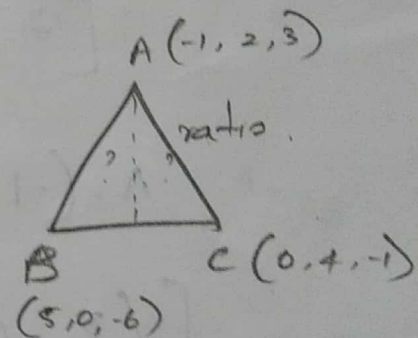 A (-1, 2, 3)
? ? ratio.
B C (0, 4, -1)
(5, 0, -6)